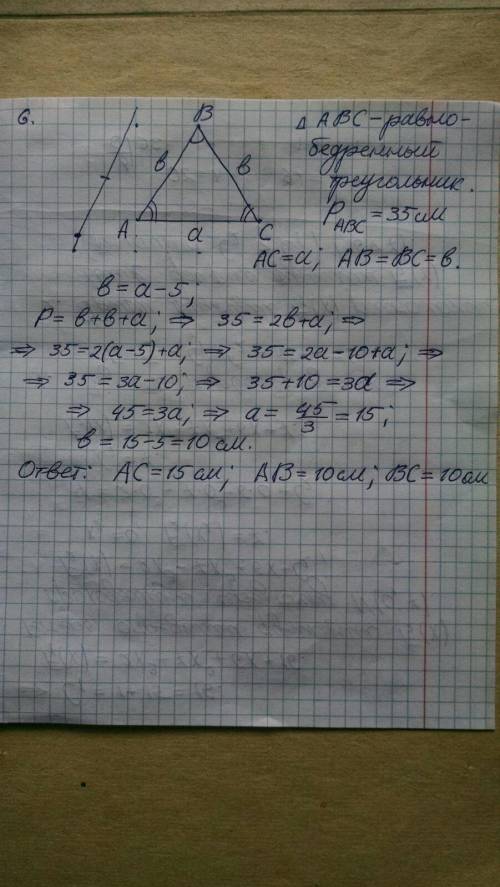 6.
B
Δ ABC - равно-
бедренный
треугольник.
в
в
P_ABC = 35 см
A
a
C
AC = a; AB = BC = в.
в = a - 5;
P = в + в + a; ⇒ 35 = 2в + a; ⇒
⇒ 35 = 2(a - 5) + a; ⇒ 35 = 2a - 10 + a; ⇒
⇒ 35 = 3a - 10; ⇒ 35 + 10 = 3a ⇒
⇒ 45 = 3a; ⇒ a = 45/3 = 15;
в = 15 - 5 = 10 см.
Ответ: AC = 15 см; AB = 10 см; BC = 10 см